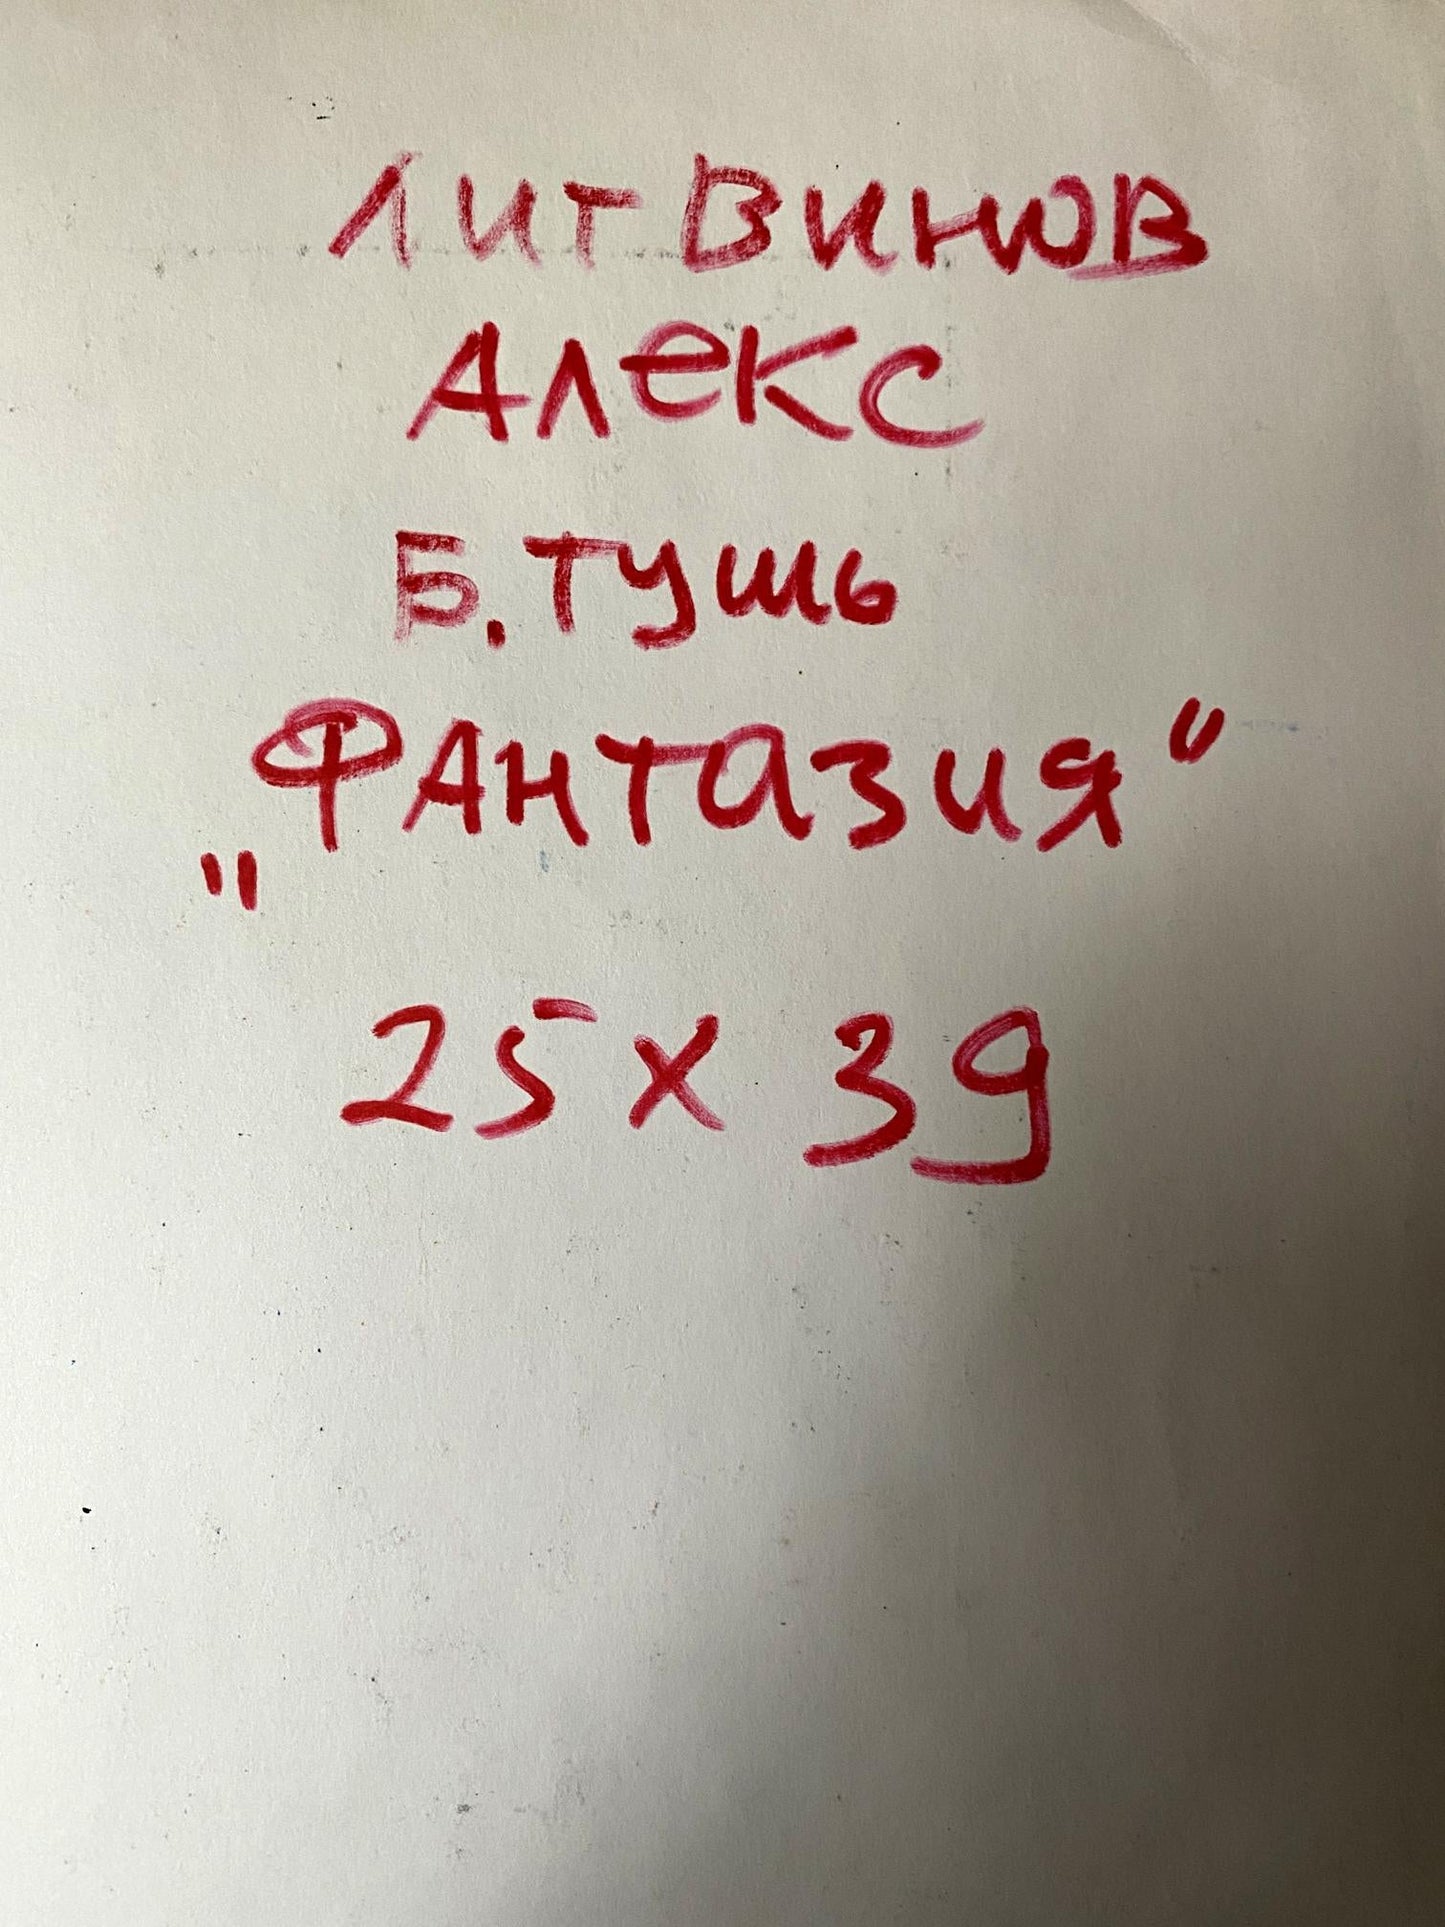 Литвинов
Алекс
Б. Тушь
„Фантазия"
25 х 39